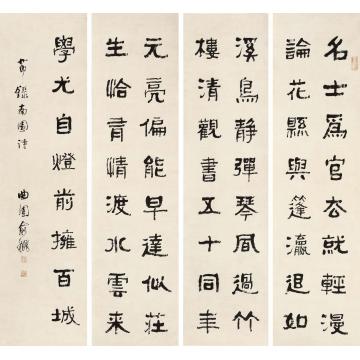 名士為官去就輕漫
論花縣與蓬瀛退如
溪鳥靜彈琴風過竹
樓清觀書五十同年
元亮偏能早達似莊
生恰有情渡水雲来
學尤自燈前擁百城
節錄南園詩 曲園俞樾